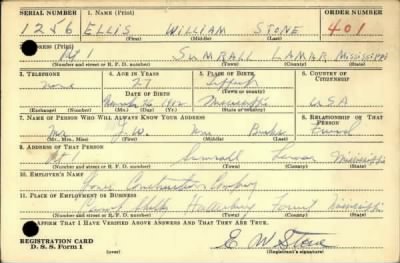 SERIAL NUMBER 1. NAME (Print) ORDER NUMBER
1256 ELLIS WILLIAM STONE 401
(First) (Middle) (Last)
ADDRESS (Print)
Rt 1 SUMRALL LAMAR MISSISSIPPI
(Number and street or R. F. D. number) (Town) (County) (State)
3. TELEPHONE 4. AGE IN YEARS 5. PLACE OF BIRTH 6. COUNTRY OF CITIZENSHIP
none 27
DATE OF BIRTH (Town or county)
1912 Mississippi USA
(Exchange) (Number) (Mo.) (Day) (Yr.) (State or country)
7. NAME OF PERSON WHO WILL ALWAYS KNOW YOUR ADDRESS 8. RELATIONSHIP OF THAT PERSON
Mr. J. W. Friend
(Mr., Mrs., Miss) (First) (Middle) (Last)
9. ADDRESS OF THAT PERSON
Rt Sumrall Lamar Mississippi
(Number and street or R. F. D. number) (Town) (County) (State)
10. EMPLOYER'S NAME
Construction Company
11. PLACE OF EMPLOYMENT OR BUSINESS
Camp Shelby Hattiesburg Forrest Mississippi
(Number and street or R. F. D. number) (Town) (County) (State)
I AFFIRM THAT I HAVE VERIFIED ABOVE ANSWERS AND THAT THEY ARE TRUE.
REGISTRATION CARD
D. S. S. Form 1
(over)
E. W. Stone
(Registrant's signature)